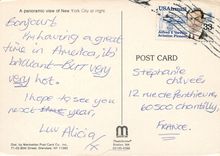 A panoramic view of New York City at night
Bonjour!
I'm having a great
time in America, it's
brilliant - but very
very hot.
I hope to see you
next year,
Luv Alicia
x
USAirmail
Alfred V. Verville
Aviation Pioneer
POST CARD
Stéphanie
12 rue de
60500 Chantilly,
FRANCE.
Dist. by Manhattan Post Card Co. Inc.